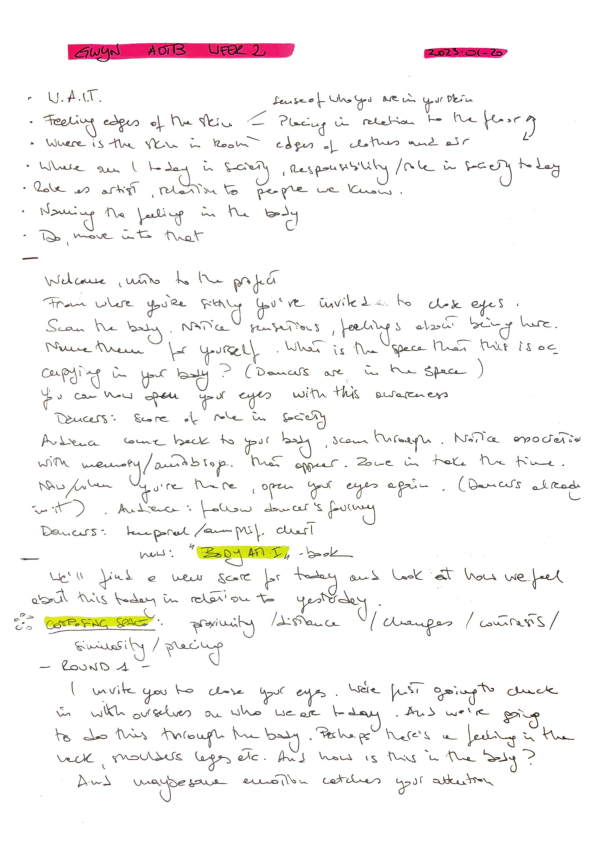 GWYN AOTB WEEK 2 2023-01-20
• W.A.I.T. sense of who you are in your skin
• Feeling edges of the skin – Placing in relation to the floor
• Where is the skin in Room edges of clothes and air
• Where am I today in society, Responsibility/role in society today
• Role as artist, relation to people we know.
• Naming the feeling in the body
• Do, move into that
—
Welcome, intro to the project
From where you're sitting you've invited to close eyes.
Scan the body. Notice sensations, feelings about being here.
Name them for yourself. What is the space that this is oc-
cupying in your body? (Dancers are in the space)
You can now open your eyes with this awareness
Dancers: score of role in society
Audience come back to your body, scan through. Notice associatio
with memory/ that appear. Zone in take the time.
Now/when you're there, open your eyes again. (Dancers already
in it). Audience: follow dancer's journey
Dancers: temporal/amplif. chart
— new: "BODY AM I" -book
We'll find a new score for today and look at how we feel
about this today in relation to yesterday.
COMPOSING SPACE: proximity /distance /changes / contrasts/
similarity / placing
– ROUND 1 –
I invite you to close your eyes. We're just going to check
in with ourselves on who we are today. And we're going
to do this through the body. Perhaps there's a feeling in the
neck, shoulders legs etc. And how is this in the body?
And maybe some emotion catches your attention